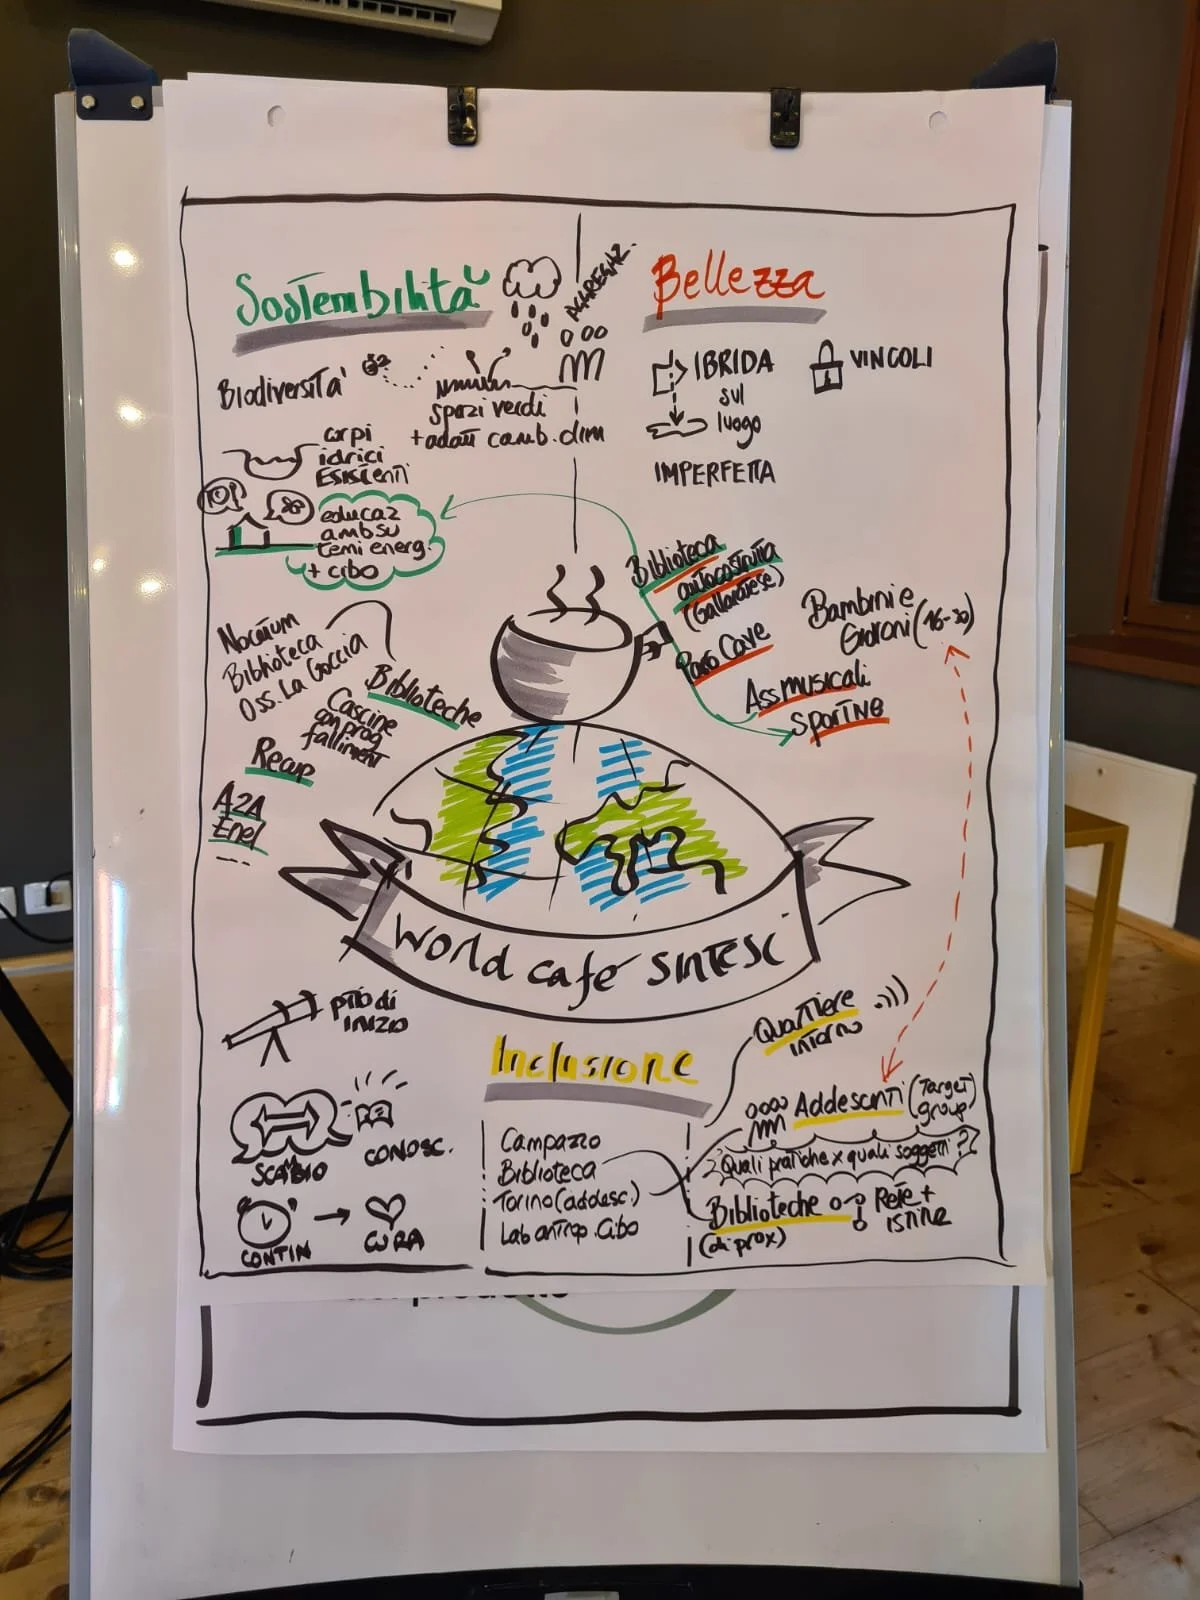 Sostenibilità
AGGREGAZ.
Biodiversità
spazi verdi
+ adatt camb. clim
corpi
idrici
Esistenti
educaz
amb su
temi energ.
+ cibo
Biblioteca
Oss. La Goccia
Biblioteche
Cascine
con prog
fallimenti
Recup
A2A
Enel
Bellezza
IBRIDA
sul
luogo
IMPERFETTA
VINCOLI
Biblioteca
autocostruita
(Gallaratese)
Parco Cave
Ass musicali
sportive
Bambini e
Giovani (16-30)
World café SINTESI
pto di
INIZIO
SCAMBIO
CONOSC.
CONTIN
CURA
Inclusione
Campazzo
Biblioteca
Torino (addesc.)
Lab antrop. cibo
Quartiere
intorno
Addescenti (Target
group)
Quali pratiche x quali soggetti?
Biblioteche
(di prox)
Rete +